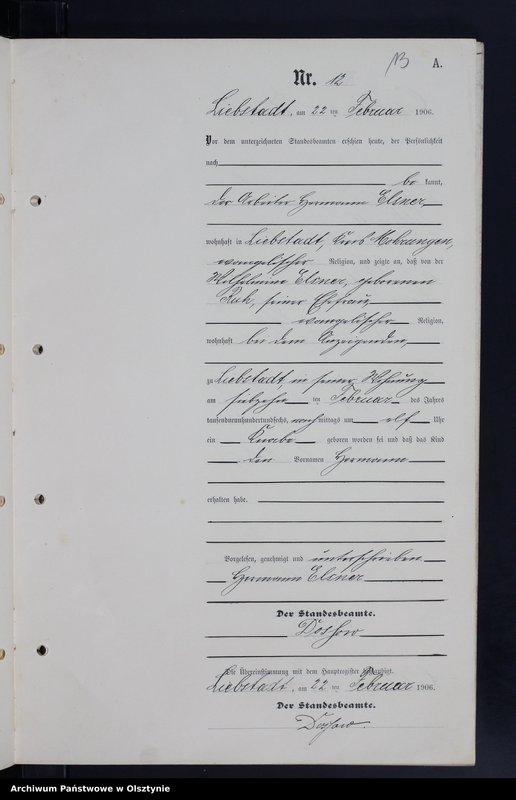 13 A.
Nr. 12
Liebstadt, am 22 ten Februar 1906.
Vor dem unterzeichneten Standesbeamten erschien heute, der Persönlichkeit
nach
be kannt,
der Arbeiter Hermann Elsner,
wohnhaft in Liebstadt, Kreis Mohrungen,
evangelischer Religion, und zeigte an, daß von der
Wilhelmine Elsner, geborenen
Kuk, seiner Ehefrau,
evangelischer Religion,
wohnhaft bei dem Anzeigenden,
zu Liebstadt, in seiner Wohnung
am siebzehn ten Februar des Jahres
tausendneunhundertundsechs, nachmittags um elf Uhr
ein Knabe geboren worden sei und daß das Kind
den Vornamen Hermann
erhalten habe.
Vorgelesen, genehmigt und unterschrieben
Hermann Elsner
Der Standesbeamte.
Die Übereinstimmung mit dem Hauptregister beglaubigt.
Liebstadt, am 22 ten Februar 1906.
Der Standesbeamte.
Archiwum Państwowe w Olsztynie